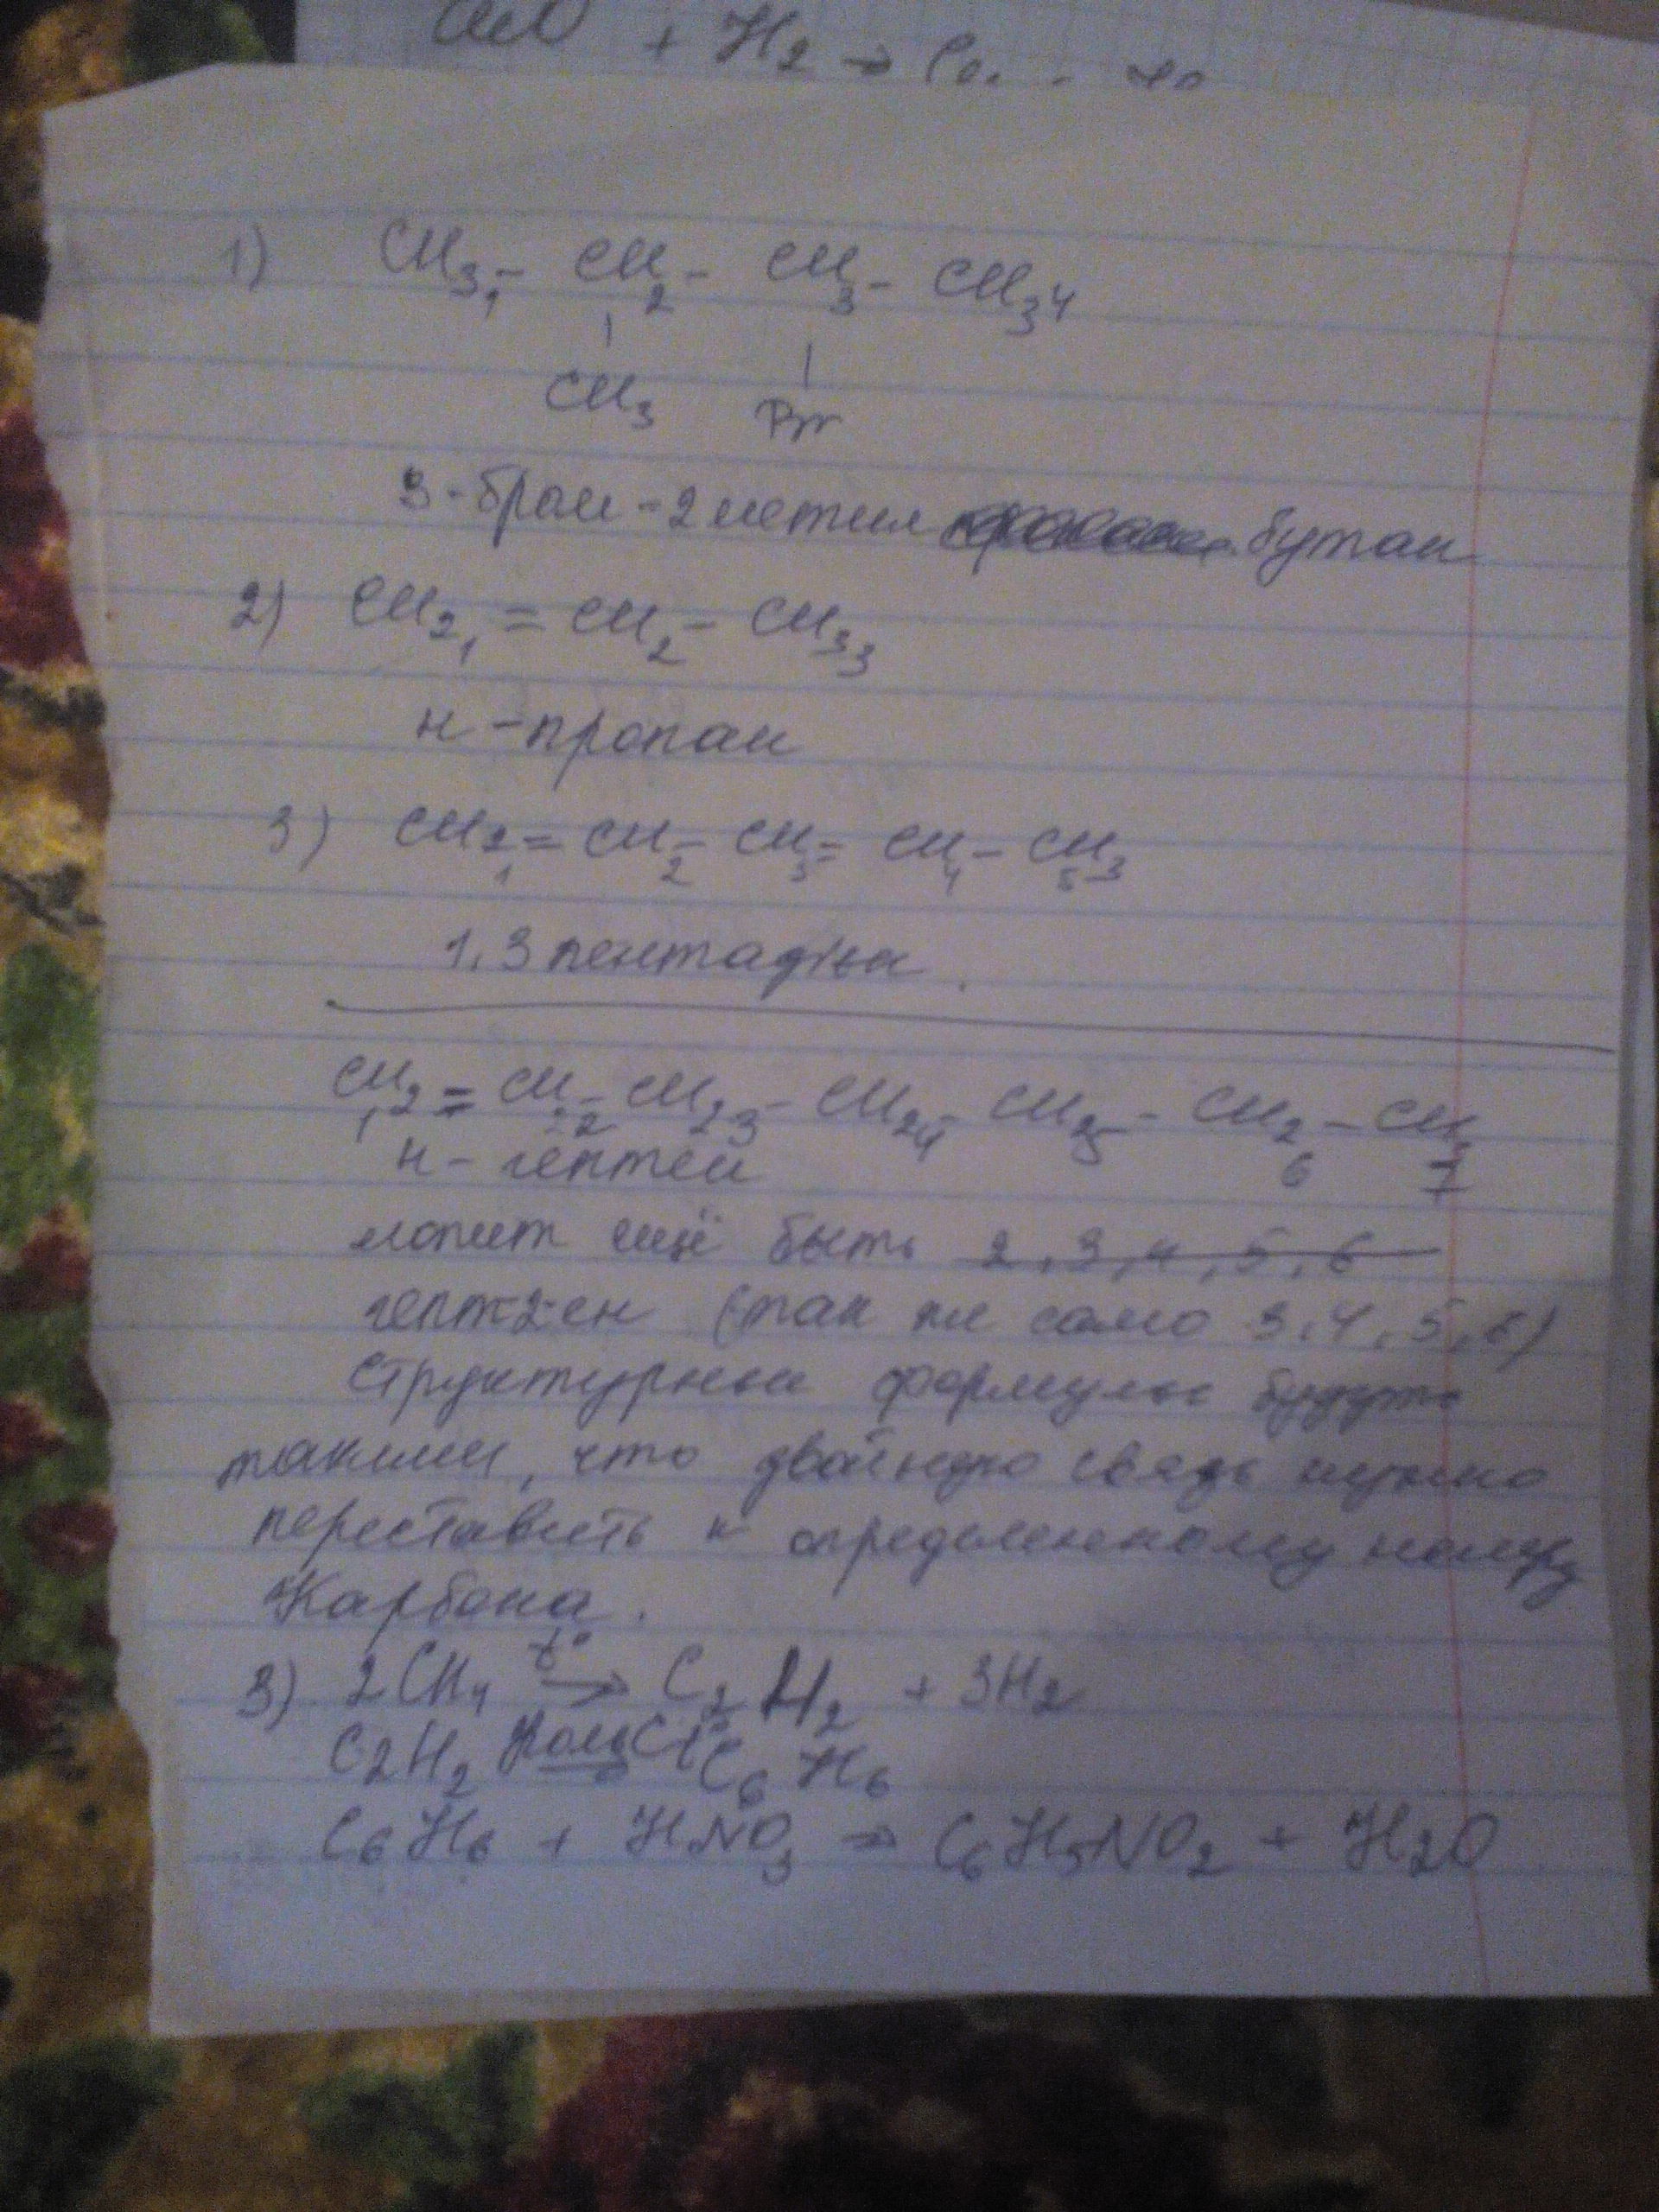 + H2 →
1) CH3 1 - CH 2 - CH 3 - CH3 4
CH3 Br
3-бром-2метил бутан
2) CH2 1 = CH 2 - CH3 3
н-пропан
3) CH2 1 = CH 2 - CH 3 = CH 4 - CH3 5
1,3 пентадіен
CH2 1 = CH 2 - CH2 3 - CH2 4 - CH2 5 - CH2 6 - CH3 7
н-гептен
может ещё быть 2,3,4,5,6
гепт-2-ен (так же само 3,4,5,6)
Структурные формулы будуть
такими, что двойную связь нужно
переставить к определенному номеру
Карбона.
3) 2CH4 t° → C2H2 + 3H2
C2H2 → C6H6
C6H6 + HNO3 → C6H5NO2 + H2O